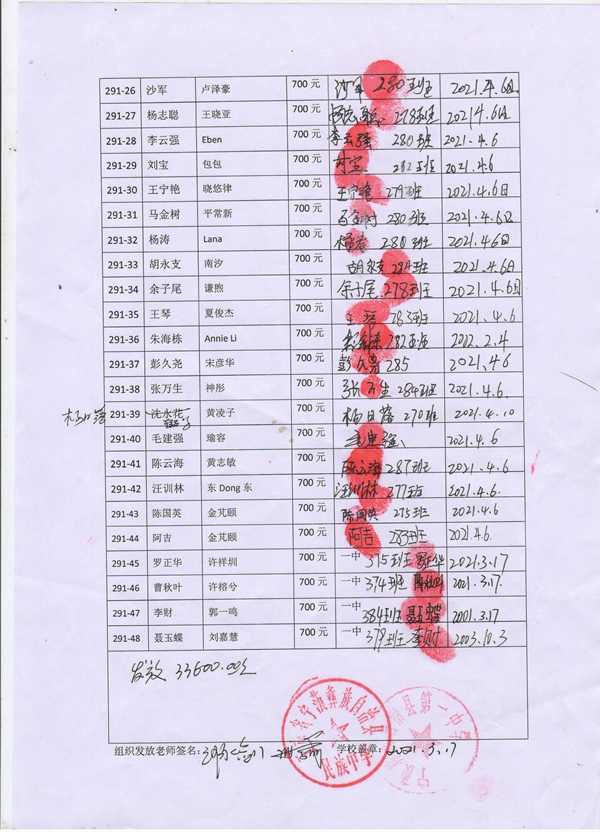 291-26 沙军 卢泽豪 700 元 沙军 280班 2021.4.6日
291-27 杨志聪 王晓亚 700 元 杨志聪 278班 2021 4.6日
291-28 李云强 Eben 700 元 李云强 280班 2021.4.6
291-29 刘宝 包包 700 元 刘宝 282班 2021.4.6
291-30 王宁艳 晓悠律 700 元 王宁艳 279班 2021.4.6日
291-31 马金树 平常新 700 元 马金树 280班 2021.4.6日
291-32 杨涛 Lana 700 元 杨涛 280班 2021.4.6日
291-33 胡永支 南汐 700 元 胡永支 284班 2021.4.6日
291-34 余子尾 谦煦 700 元 余子尾 278班 2021.4.6日
291-35 王琴 夏俊杰 700 元 王琴 283班 2021.4.6
291-36 朱海栋 Annie Li 700 元 朱海栋 282班 2012.2.4
291-37 彭久尧 宋彦华 700 元 彭久尧 285 2021.4.6
291-38 张万生 神彤 700 元 张万生 284班 2021.4.6.
杨日蓉 291-39 沈永花 黄凌子 700 元 杨日蓉 270班 2021.4.10
291-40 毛建强 瑜容 700 元 毛建强 2021.4.6
291-41 陈云海 黄志敏 700 元 陈云海 287班 2021.4.6
291-42 汪训林 东 Dong 东 700 元 汪训林 277班 2021.4.6.
291-43 陈国英 金芃颐 700 元 陈国英 275班 2021.4.6
291-44 阿吉 金芃颐 700 元 阿吉 283班 2021.4.6.
291-45 罗正华 许祥圳 700 元 一中 375班 罗正华 2021.3.17
291-46 曹秋叶 许榕兮 700 元 一中 374班 曹秋叶 2021.3.17.
291-47 李财 郭一鸣 700 元 一中 384班 聂玉蝶 2001.3.17
291-48 聂玉蝶 刘嘉慧 700 元 一中 378班 李财 2003.10.3
发放 33600.00元
省宁蒗彝族自治县
民族中学
县第一中学
组织发放老师签名: 学校盖章: 2021.3.17